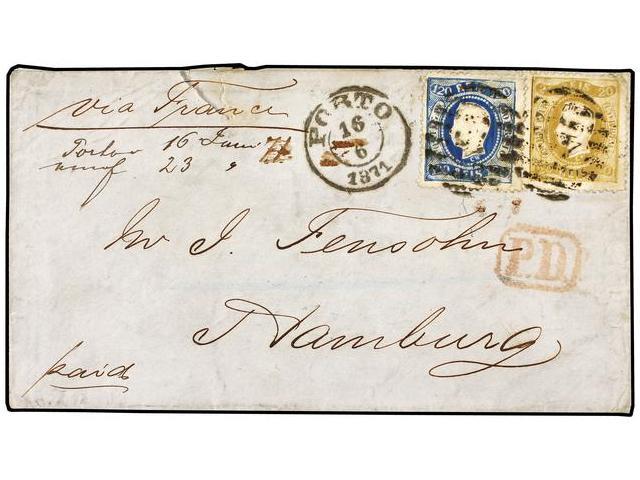 via France
Porto 16 Juni 71
23 "
PORTO
16
6
1871
120 REIS
20
Mr J. Fensohn
P.D.
Hamburg
paid